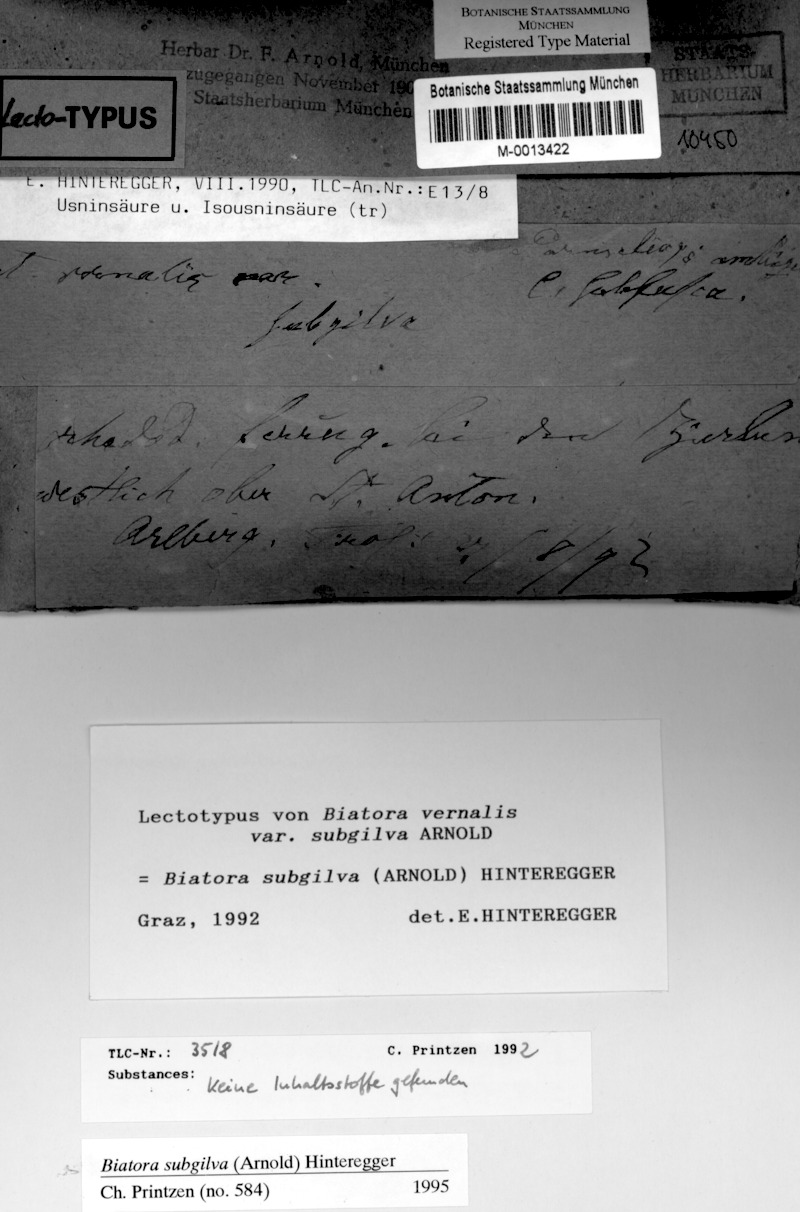 BOTANISCHE STAATSSAMMLUNG
MÜNCHEN
Registered Type Material
Herbar Dr. F. Arnold, München
zugegangen November 190
Staatsherbarium München
STAATS-
HERBARIUM
MÜNCHEN
Lecto-TYPUS
Botanische Staatssammlung München
M-0013422
10450
E. HINTEREGGER, VIII.1990, TLC-An.Nr.:E13/8
Usninsäure u. Isousninsäure (tr)
vernalis var.
subgilva
C. subfusca.
rhodod. ferrug. bei den
westlich ober St. Anton.
Arlberg. Tirol. /8/92
Lectotypus von Biatora vernalis
var. subgilva ARNOLD
= Biatora subgilva (ARNOLD) HINTEREGGER
Graz, 1992 det.E.HINTEREGGER
TLC-Nr.: 3518 C. Printzen 1992
Substances: Keine Inhaltsstoffe gefunden
Biatora subgilva (Arnold) Hinteregger
Ch. Printzen (no. 584) 1995